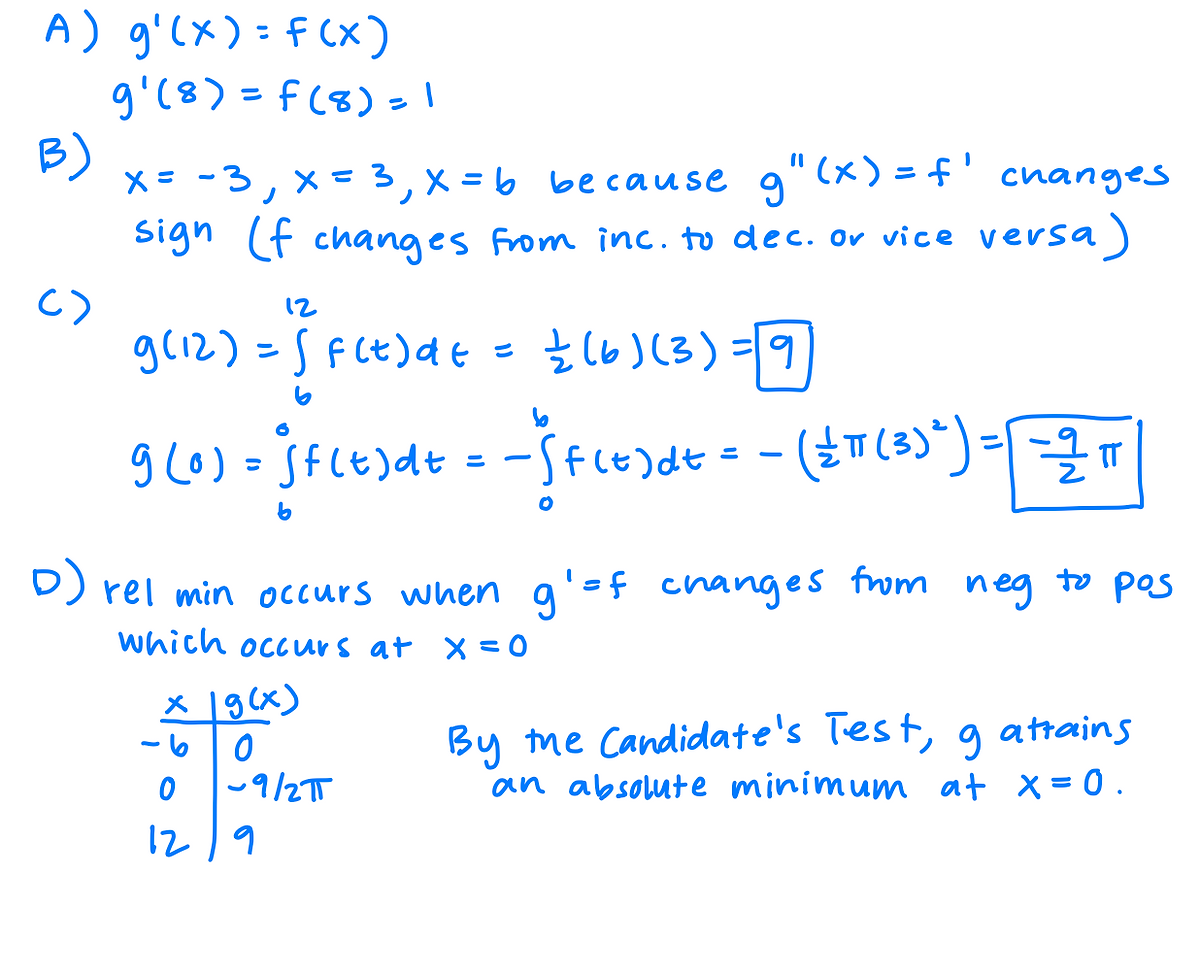 A) g'(x) = f(x)
g'(8) = f(8) = 1
B)
x = -3, x = 3, x = 6 because g"(x) = f' changes
sign (f changes from inc. to dec. or vice versa)
C)
g(12) = ∫₆¹² f(t)dt = ½(6)(3) = 9
g(0) = ∫₆⁰ f(t)dt = -∫₀⁶ f(t)dt = -(½π(3)²) = -9/2 π
D) rel min occurs when g' = f changes from neg to pos
which occurs at x = 0
x | g(x)
-6 | 0
0 | -9/2π
12 | 9
By the Candidate's Test, g attains
an absolute minimum at x = 0.